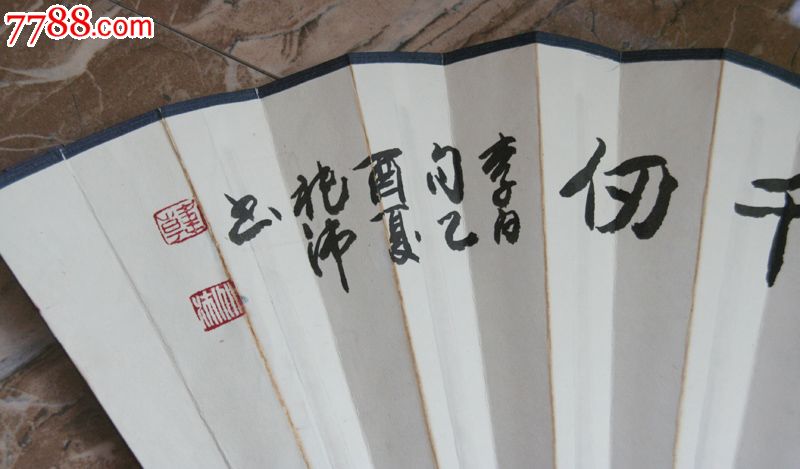 7788.com
千仞
李白
句乙
酉夏
沛
书